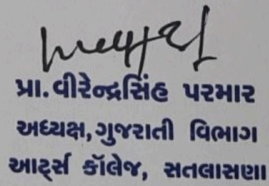 પ્રા.વીરેન્દ્રસિંહ પરમાર
અધ્યક્ષ,ગુજરાતી વિભાગ
આર્ટ્સ કૉલેજ, સતલાસણા